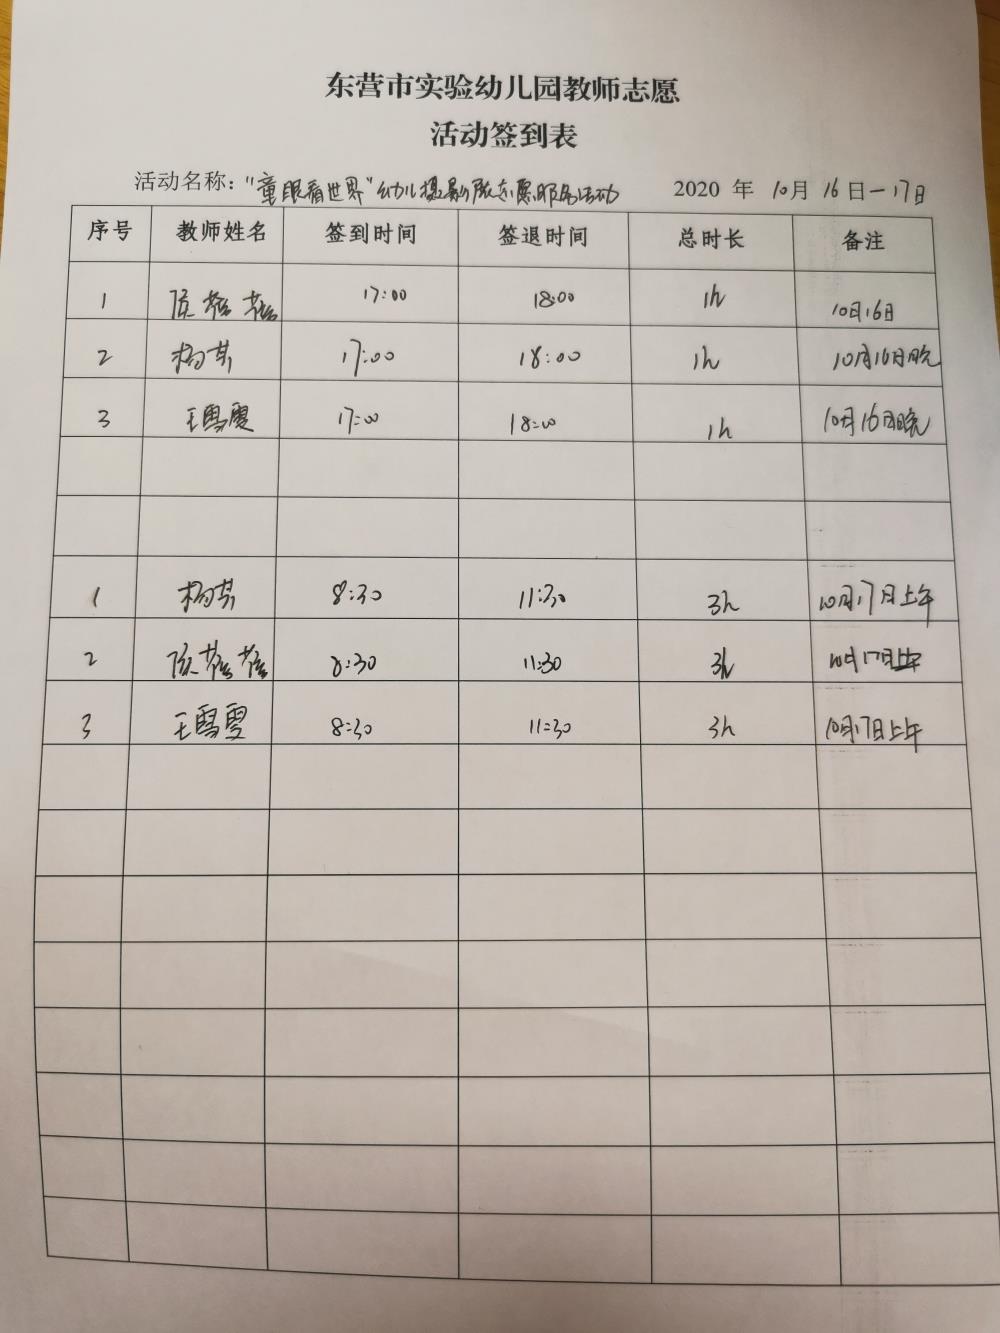 东营市实验幼儿园教师志愿
活动签到表
活动名称："童眼看世界"幼儿摄影展志愿服务活动 2020 年 10月 16日-17日
序号 教师姓名 签到时间 签退时间 总时长 备注
1 17:00 18:00 1h 10月16日
2 杨其 17:00 18:00 1h 10月16日晚
3 王雪雯 17:00 18:00 1h 10月16日晚
1 杨其 8:30 11:30 3h 10月17日上午
2 8:30 11:30 3h 10月17日上午
3 王雪雯 8:30 11:30 3h 10月17日上午